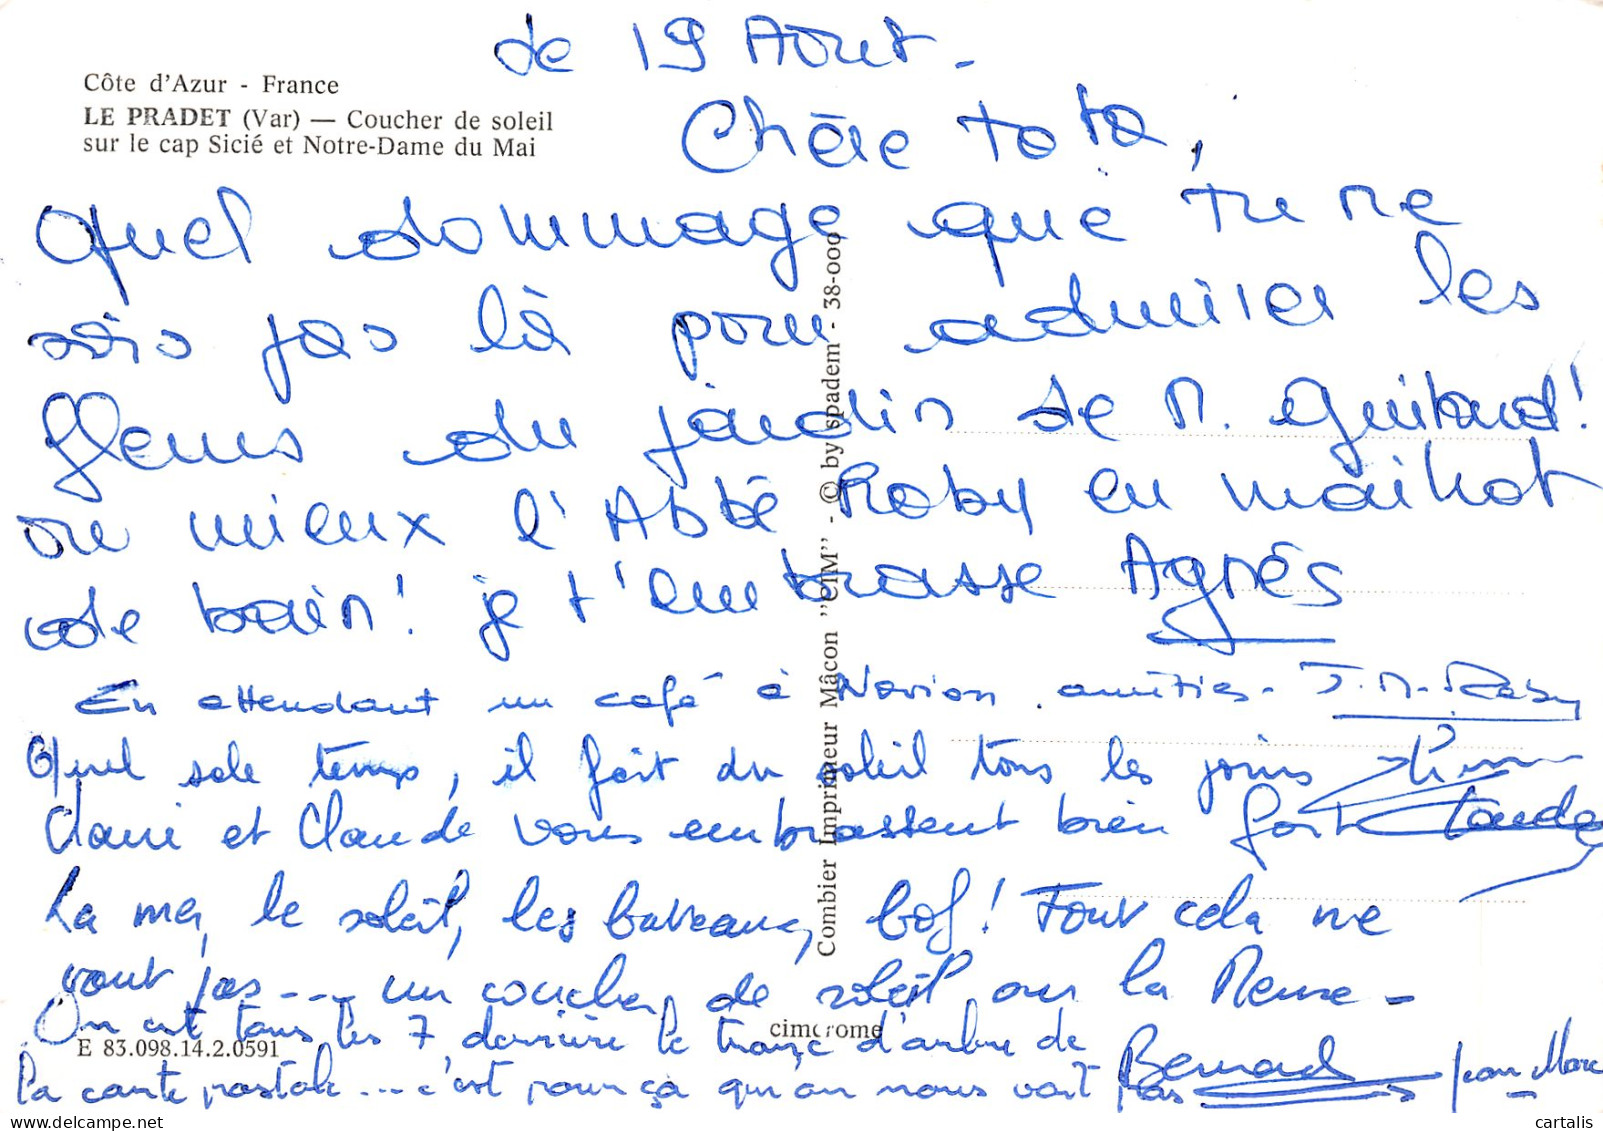 de 19 Août -
Côte d'Azur - France
LE PRADET (Var) — Coucher de soleil
sur le cap Sicié et Notre-Dame du Mai
Chère Tota,
Quel dommage que tu ne
sois pas là pour admirer les
fleurs du jardin de M. Guitaud!
ou mieux l'Abbé Roby en maillot
de bain! je t'embrasse Agnès
En attendant un café à Novion. amitiés - J.M. Roby
Quel sale temps, il fait du soleil tous les jours
Claire et Claude vous embrassent bien fort Claude
La mer, le soleil, les bateaux, bof! Tout cela ne
vaut pas... un coucher de soleil sur la Meuse -
On est tous les 7 derrière le tronc d'arbre de
la carte postale... c'est pour ça qu'on nous voit pas Bernard Jean Marc
Combier Imprimeur Mâcon "CIM" - © by spadem - 38-000
cimcrome
E 83.098.14.2.0591
cartalis